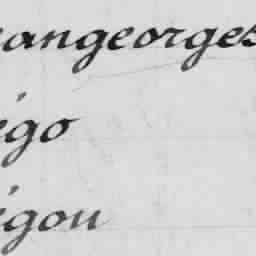 angeorges
égo
égou